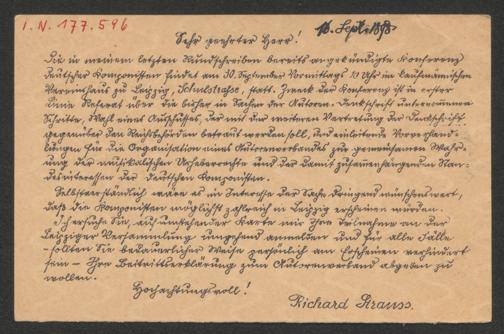 I.N. 177.596
15. Sept. 1898
Sehr geehrter Herr!
Die in meinem letzten Rundschreiben bereits angekündigte Konferenz
deutscher Komponisten findet am 30. September Vormittags 10 Uhr im kaufmännischen
Vereinshaus zu Leipzig, Schulstrasse, statt. Zweck der Konferenz ist in erster
Linie Referat über die bisher in Sachen der Autoren-Denkschrift unternommenen
Schritte, Wahl eines Ausschusses, der mit der weiteren Vertretung der Denkschrift
gegenüber den Reichsbehörden betraut werden soll, und einleitende Vorverhand-
lungen für die Organisation eines Autorenverbandes zur gemeinsamen Wahr-
ung der musikalischen Urheberrechte und der damit zusammenhängenden Stan-
desinteressen der deutschen Komponisten.
Selbstverständlich wäre es im Interesse der Sache dringend wünschenswert,
daß die Komponisten möglichst zahlreich in Leipzig erscheinen würden.
Ich ersuche Sie, auf umstehender Karte mir Ihre Teilnahme an der
Leipziger Versammlung umgehend anmelden und für alle Fälle
– sollten Sie bedauerlicher Weise persönlich am Erscheinen verhindert
sein – Ihre Beitrittserklärung zum Autorenverband abgeben zu
wollen.
Hochachtungsvoll!
Richard Strauss.